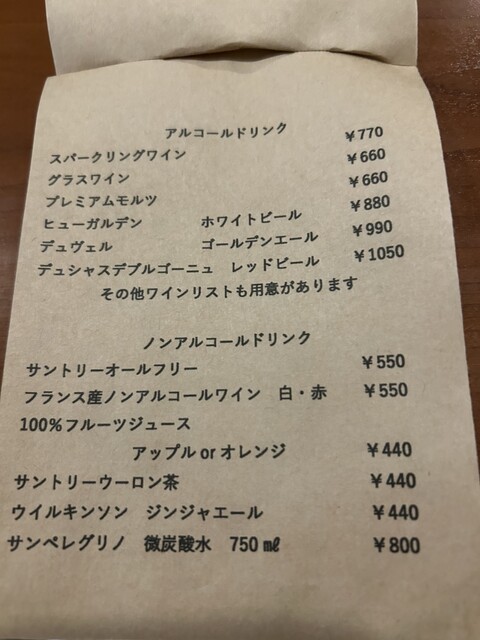 アルコールドリンク
スパークリングワイン ¥770
グラスワイン ¥660
プレミアムモルツ ¥660
ヒューガルデン ホワイトビール ¥880
デュヴェル ゴールデンエール ¥990
デュシャスデブルゴーニュ レッドビール ¥1050
その他ワインリストも用意があります
ノンアルコールドリンク
サントリーオールフリー ¥550
フランス産ノンアルコールワイン 白・赤 ¥550
100%フルーツジュース
アップル or オレンジ ¥440
サントリーウーロン茶 ¥440
ウイルキンソン ジンジャエール ¥440
サンペレグリノ 微炭酸水 750㎖ ¥800